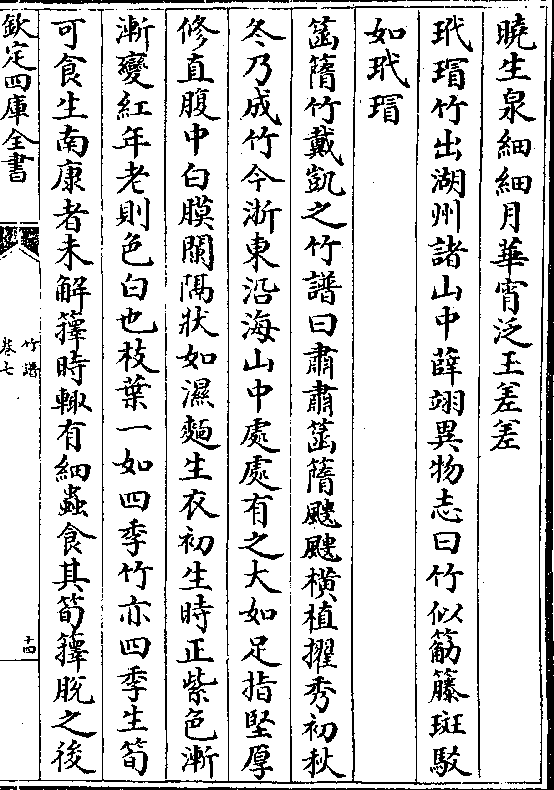 曉生泉細細月華宵泛玉差差
玳瑁竹出湖州諸山中薛翊異物志曰竹似筯籐斑駁
如玳瑁
䈽䉙竹戴凱之竹譜曰肅肅䈽䉙䬃䬃横植擢秀初秋
冬乃成竹今浙東沿海山中處處有之大如足指堅厚
修直腹中白膜闌隔狀如濕麵生衣初生時正紫色漸
漸變紅年老則色白也枝葉一如四季竹亦四季生筍
可食生南康者未解籜時輙有細蟲食其筍籜脫之後
欽定四庫全書
竹譜
卷七
十四